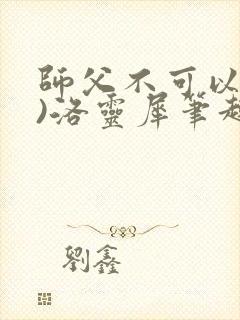 師父不可以
)洛靈犀筆趣
劉鑫